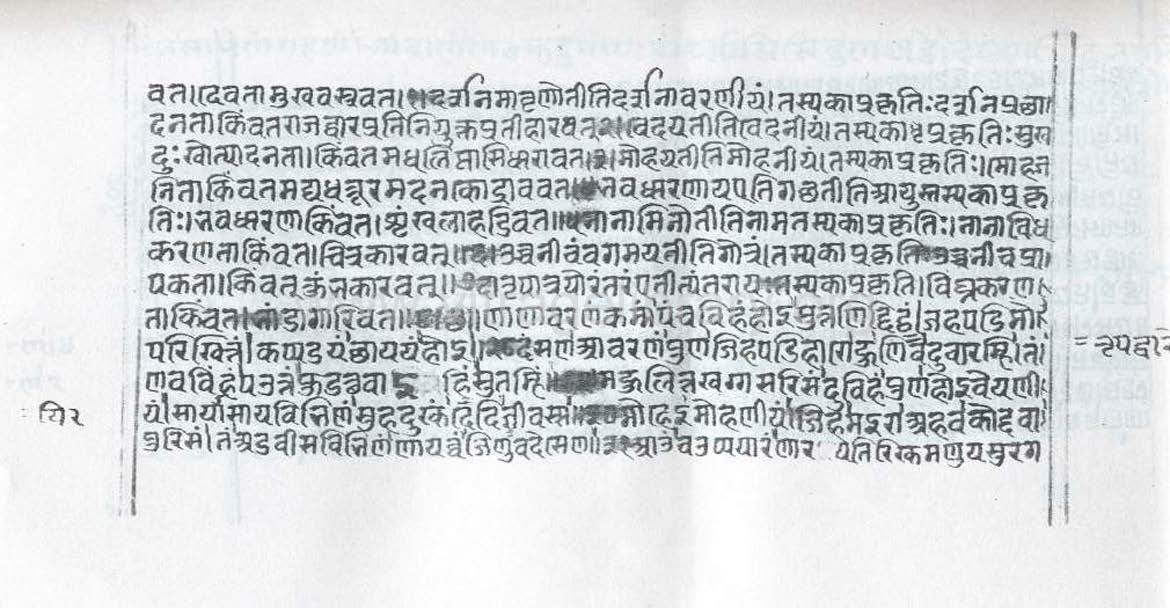 वत्।देवतामुखवस्त्रवत्।दर्शनमावृणोतीतिदर्शनावरणीयं।तस्यकाप्रकृतिःदर्शनप्रछा
दनता।किंवत्राजद्वारप्रतिनियुक्तप्रतीहारवत्।वेदयतीतिवेदनीयं।तस्यकाप्रकृतिःसुख
दुःखोत्पादनता।किंवत्मधुलिप्तासिधारावत्।मोहयतीतिमोहनीयं।तस्यकाप्रकृतिः।मोहज
निता।किंवत्मद्यधत्तूरमदनकोद्राववत्।भवधारणायएतिगछतीतिआयुस्तस्यकाप्रकृ
तिः।भवधारणकिंवत्।शृंखलाहडिवत्।नानामिनोतीतिनामतस्यकाप्रकृतिः।नानाविध
करणता।किंवत्।चित्रकारवत्।उच्चनीचंवगमयतीतिगोत्रं।तस्यकाप्रकृतिउच्चनीचप्रा
पकता।किंवत्कुंभकारवत्॥दातृपात्रयोरंतरंएतीत्यंतरायःतस्यकाप्रकृति।विघ्नकरण
ताकिंवत्।भांडागारिवत्॥णाणावरणकमापंचविहंहोइसुत्तणिद्दिट्ठं।जहपडिमो
परिखित्तं।कप्पडयंछाययंहोइ।दंसणआवरणंपुणजिहपडिहारो दुवारम्हि।तं
णवविहंपउत्तं सुत्तम्हि। महुलित्तखग्गसरिसंदुविहंपुणहोइवेयणी
यं।सायासायविभिण्णंसुहदुरकंदेइजीवस्स।मोहेइमोहणीयं।जिहमइराअहवकोद्दवा
पुरिसं।तंअडवीसविभिण्णंणायव्वंजिणुवदेसेण।आउचउप्पयारंणार येतिरिक्कमणुयसुरग
=नृपद्वारे
=थिर